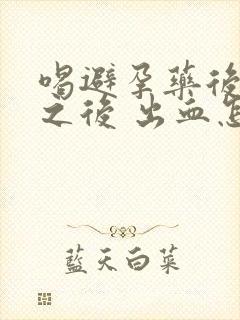 喝避孕藥後
之後 出血怎
藍天白菜